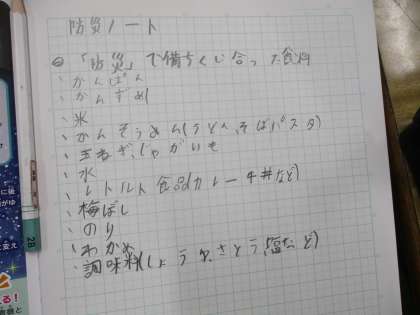 防災ノート
「防災」で備ちくし合った食料
かんぱん
かんずめ
米
かんそうめん(うどん、そばパスタ)
玉ねぎ、じゃがいも
水
レトルト食品(カレー牛丼など)
梅ぼし
のり
わかめ
調味料(しょうゆ、さとう、塩など)
2B